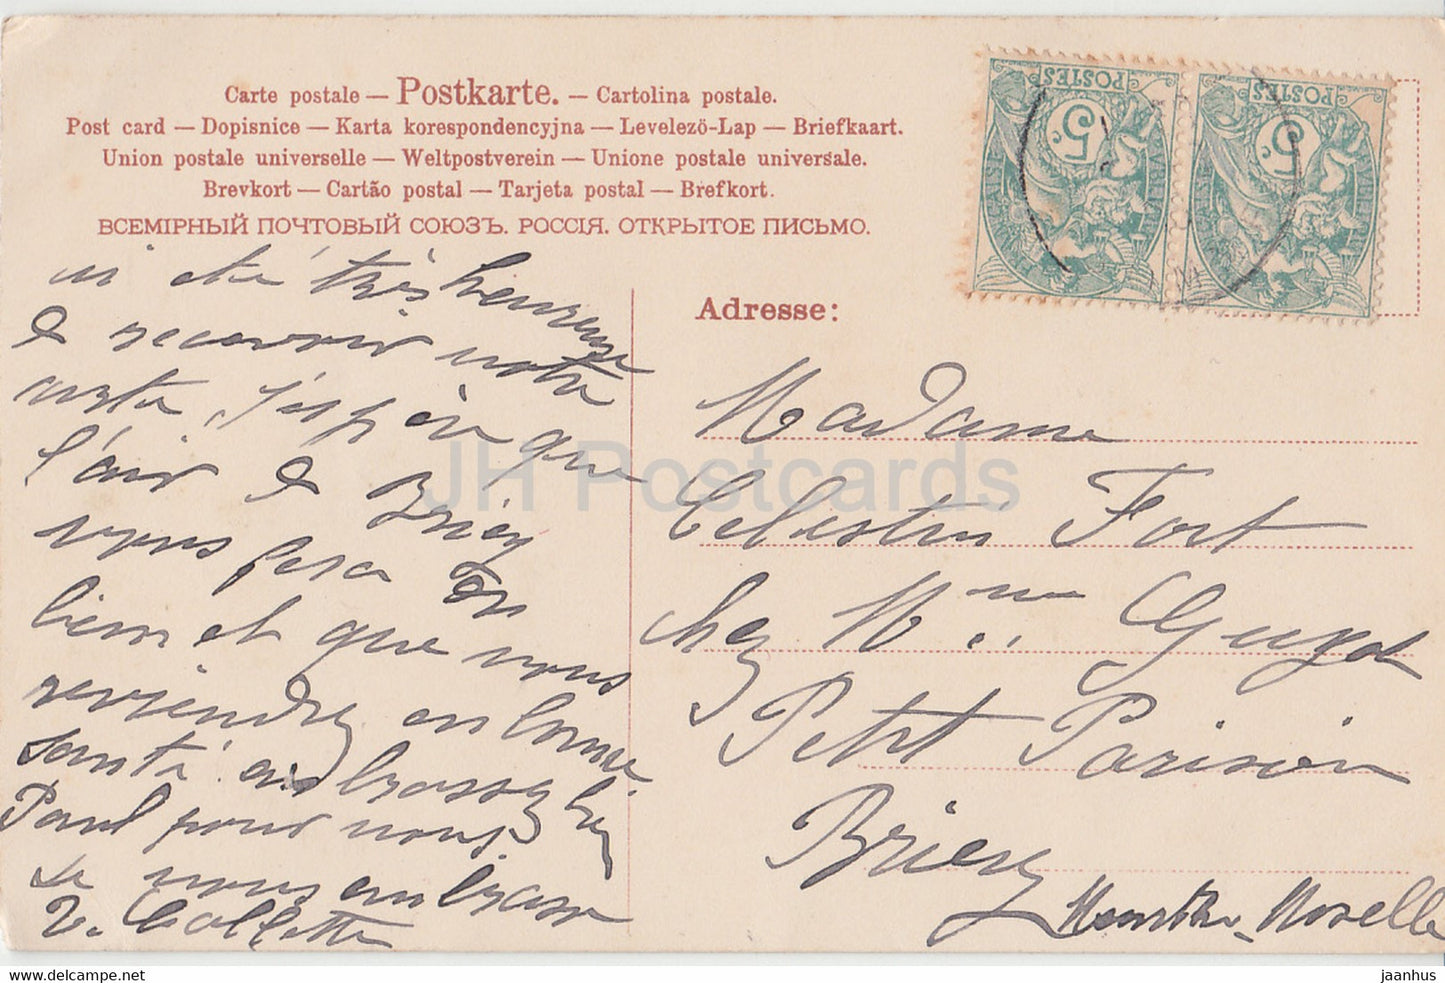 Carte postale — Postkarte. — Cartolina postale.
Post card — Dopisnice — Karta korespondencyjna — Levelezö-Lap — Briefkaart.
Union postale universelle — Weltpostverein — Unione postale universale.
Brevkort — Cartão postal — Tarjeta postal — Brefkort.
ВСЕМІРНЫЙ ПОЧТОВЫЙ СОЮЗЪ. РОССІЯ. ОТКРЫТОЕ ПИСЬМО.
POSTES
5 c.
POSTES
5 c.
été très heureuse
de recevoir votre
carte, j'espère que
l'air de Briey
vous fera du
bien et que vous
reviendrez en bonne
santé embrassez bien
Paul pour nous
je vous embrasse
V. Collette
Adresse:
Madame
Celestin Fort
chez Mme Guyot
Petit Parisien
Briey
Meurthe-Moselle
JH Postcards
jaanhus.ecrater.com
jaanhus